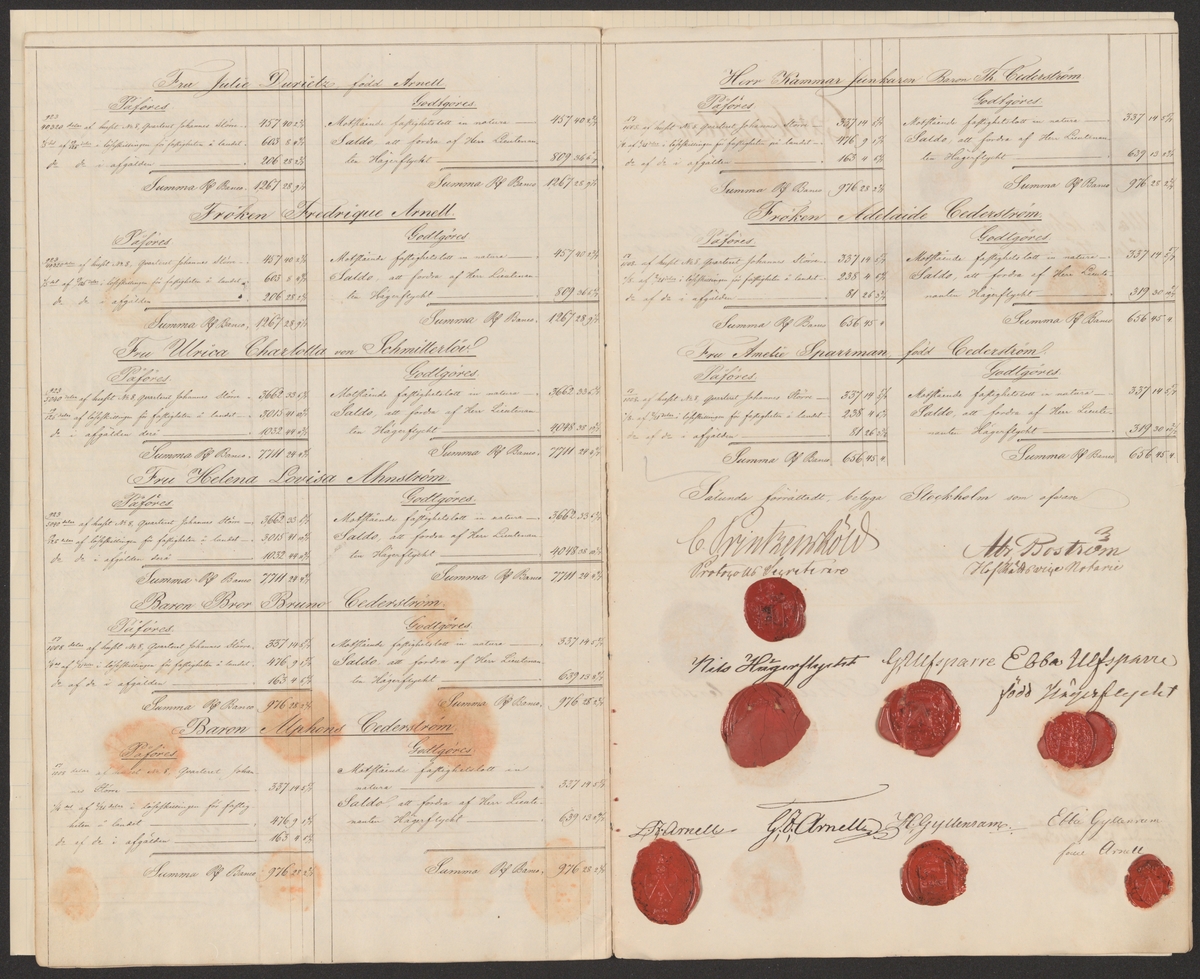 Fru Julie Durietz, född Arnell
Påföres
af huset No 8, Quarteret Johannes Större 457 40
i lösesskillningen för fastigheten å landet 603 8
do do i afgälden 206 28
Summa Rf Banco 1267 28
Godtgöres
Motstående fastighetslott in natura 457 40
Saldo, att fordra af Herr Lieutenan-
ten Hägerflycht 809 36
Summa Rf Banco 1267 28
Fröken Fredrique Arnell.
Påföres
af huset No 8, Quarteret Johannes Större 457 40
i lösesskillningen för fastigheten å landet 603 8
do do i afgälden 206 28
Summa Rf Banco 1267 28
Godtgöres
Motstående fastighetslott in natura 457 40
Saldo, att fordra af Herr Lieutenan-
ten Hägerflycht 809 36
Summa Rf Banco 1267 28
Fru Ulrica Charlotta von Schmitterlöw
Påföres
af huset No 8, Quarteret Johannes Större 3662 33
i lösesskillningen för fastigheten å landet 3015 41
do i afgälden 1032 44
Summa Rf Banco 7711 24
Godtgöres
Motstående fastighetslott in natura 3662 33
Saldo, att fordra af Herr Lieutenan-
ten Hägerflycht 4048 38
Summa Rf Banco 7711 24
Fru Helena Lovisa Ahnström
Påföres
af huset No 8, Quarteret Johannes Större 3662 33
i lösesskillningen för fastigheten å landet 3015 41
do i afgälden 1032 44
Summa Rf Banco 7711 24
Godtgöres
Motstående fastighetslott in natura 3662 33
Saldo, att fordra af Herr Lieutenan-
ten Hägerflycht 4048 38
Summa Rf Banco 7711 24
Baron Bror Bruno Cederström
Påföres
af huset No 8, Quarteret Johannes Större 337 14
i lösesskillningen för fastigheten å landet 476 9
do af do i afgälden 163 4
Summa Rf Banco 976 28
Godtgöres
Motstående fastighetslott in natura 337 14
Saldo, att fordra af Herr Lieutenan-
ten Hägerflycht 639 13
Summa Rf Banco 976 28
Baron Alphons Cederström
Påföres
af huset No 8, Quarteret Johan-
nes Större 337 14
i lösesskillningen för fastig-
heten å landet 476 9
do af do i afgälden 163 4
Summa Rf Banco 976 28
Godtgöres
Motstående fastighetslott in
natura 337 14
Saldo, att fordra af Herr Lieute-
nanten Hägerflycht 639 13
Summa Rf Banco 976 28
Herr Kammar Junkaren Baron Th. Cederström
Påföres
af huset No 8, Quarteret Johannes Större 337 14
i lösesskillningen för fastigheten på landet 476 9
do af do i afgälden 163 4
Summa Rf Banco 976 28
Godtgöres
Motstående fastighetslott in natura 337 14
Saldo, att fordra af Herr Lieutenan-
ten Hägerflycht 639 13
Summa Rf Banco 976 28
Fröken Adelaide Cederström.
Påföres
af huset No 8, Quarteret Johannes Större 337 14
i lösesskillningen för fastigheten å landet 238 4
do af do i afgälden 81 26
Summa Rf Banco 656 45
Godtgöres
Motstående fastighetslott in natura 337 14
Saldo, att fordra af Herr Lieute-
nanten Hägerflycht 319 30
Summa Rf Banco 656 45
Fru Amelie Sparrman, född Cederström.
Påföres
af huset No 8, Quarteret Johannes Större 337 14
i lösesskillningen för fastigheten å landet 238 4
do af do i afgälden 81 26
Summa Rf Banco 656 45
Godtgöres
Motstående fastighetslott in natura 337 14
Saldo, att fordra af Herr Lieute-
nanten Hägerflycht 319 30
Summa Rf Banco 656 45
Sålunda förrättadt, betyga Stockholm som ofvan
C Printzensköld
Protocolls Secreterare
Boström
Hof Rätts vice Notarie
Nils Hägerflycht
G Ulfsparre
Ebba Ulfsparre
född Hägerflycht
Arnell
G. Arnell
Gyllenram
Ebba Gyllenram
född Arnell